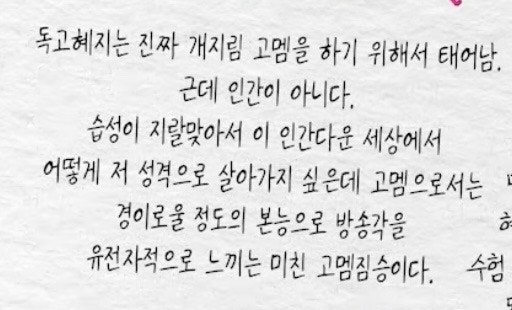 독고혜지는 진짜 개지림 고멤을 하기 위해서 태어남.
근데 인간이 아니다.
습성이 지랄맞아서 이 인간다운 세상에서
어떻게 저 성격으로 살아가지 싶은데 고멤으로서는
경이로울 정도의 본능으로 방송각을
유전자적으로 느끼는 미친 고멤짐승이다.
수험